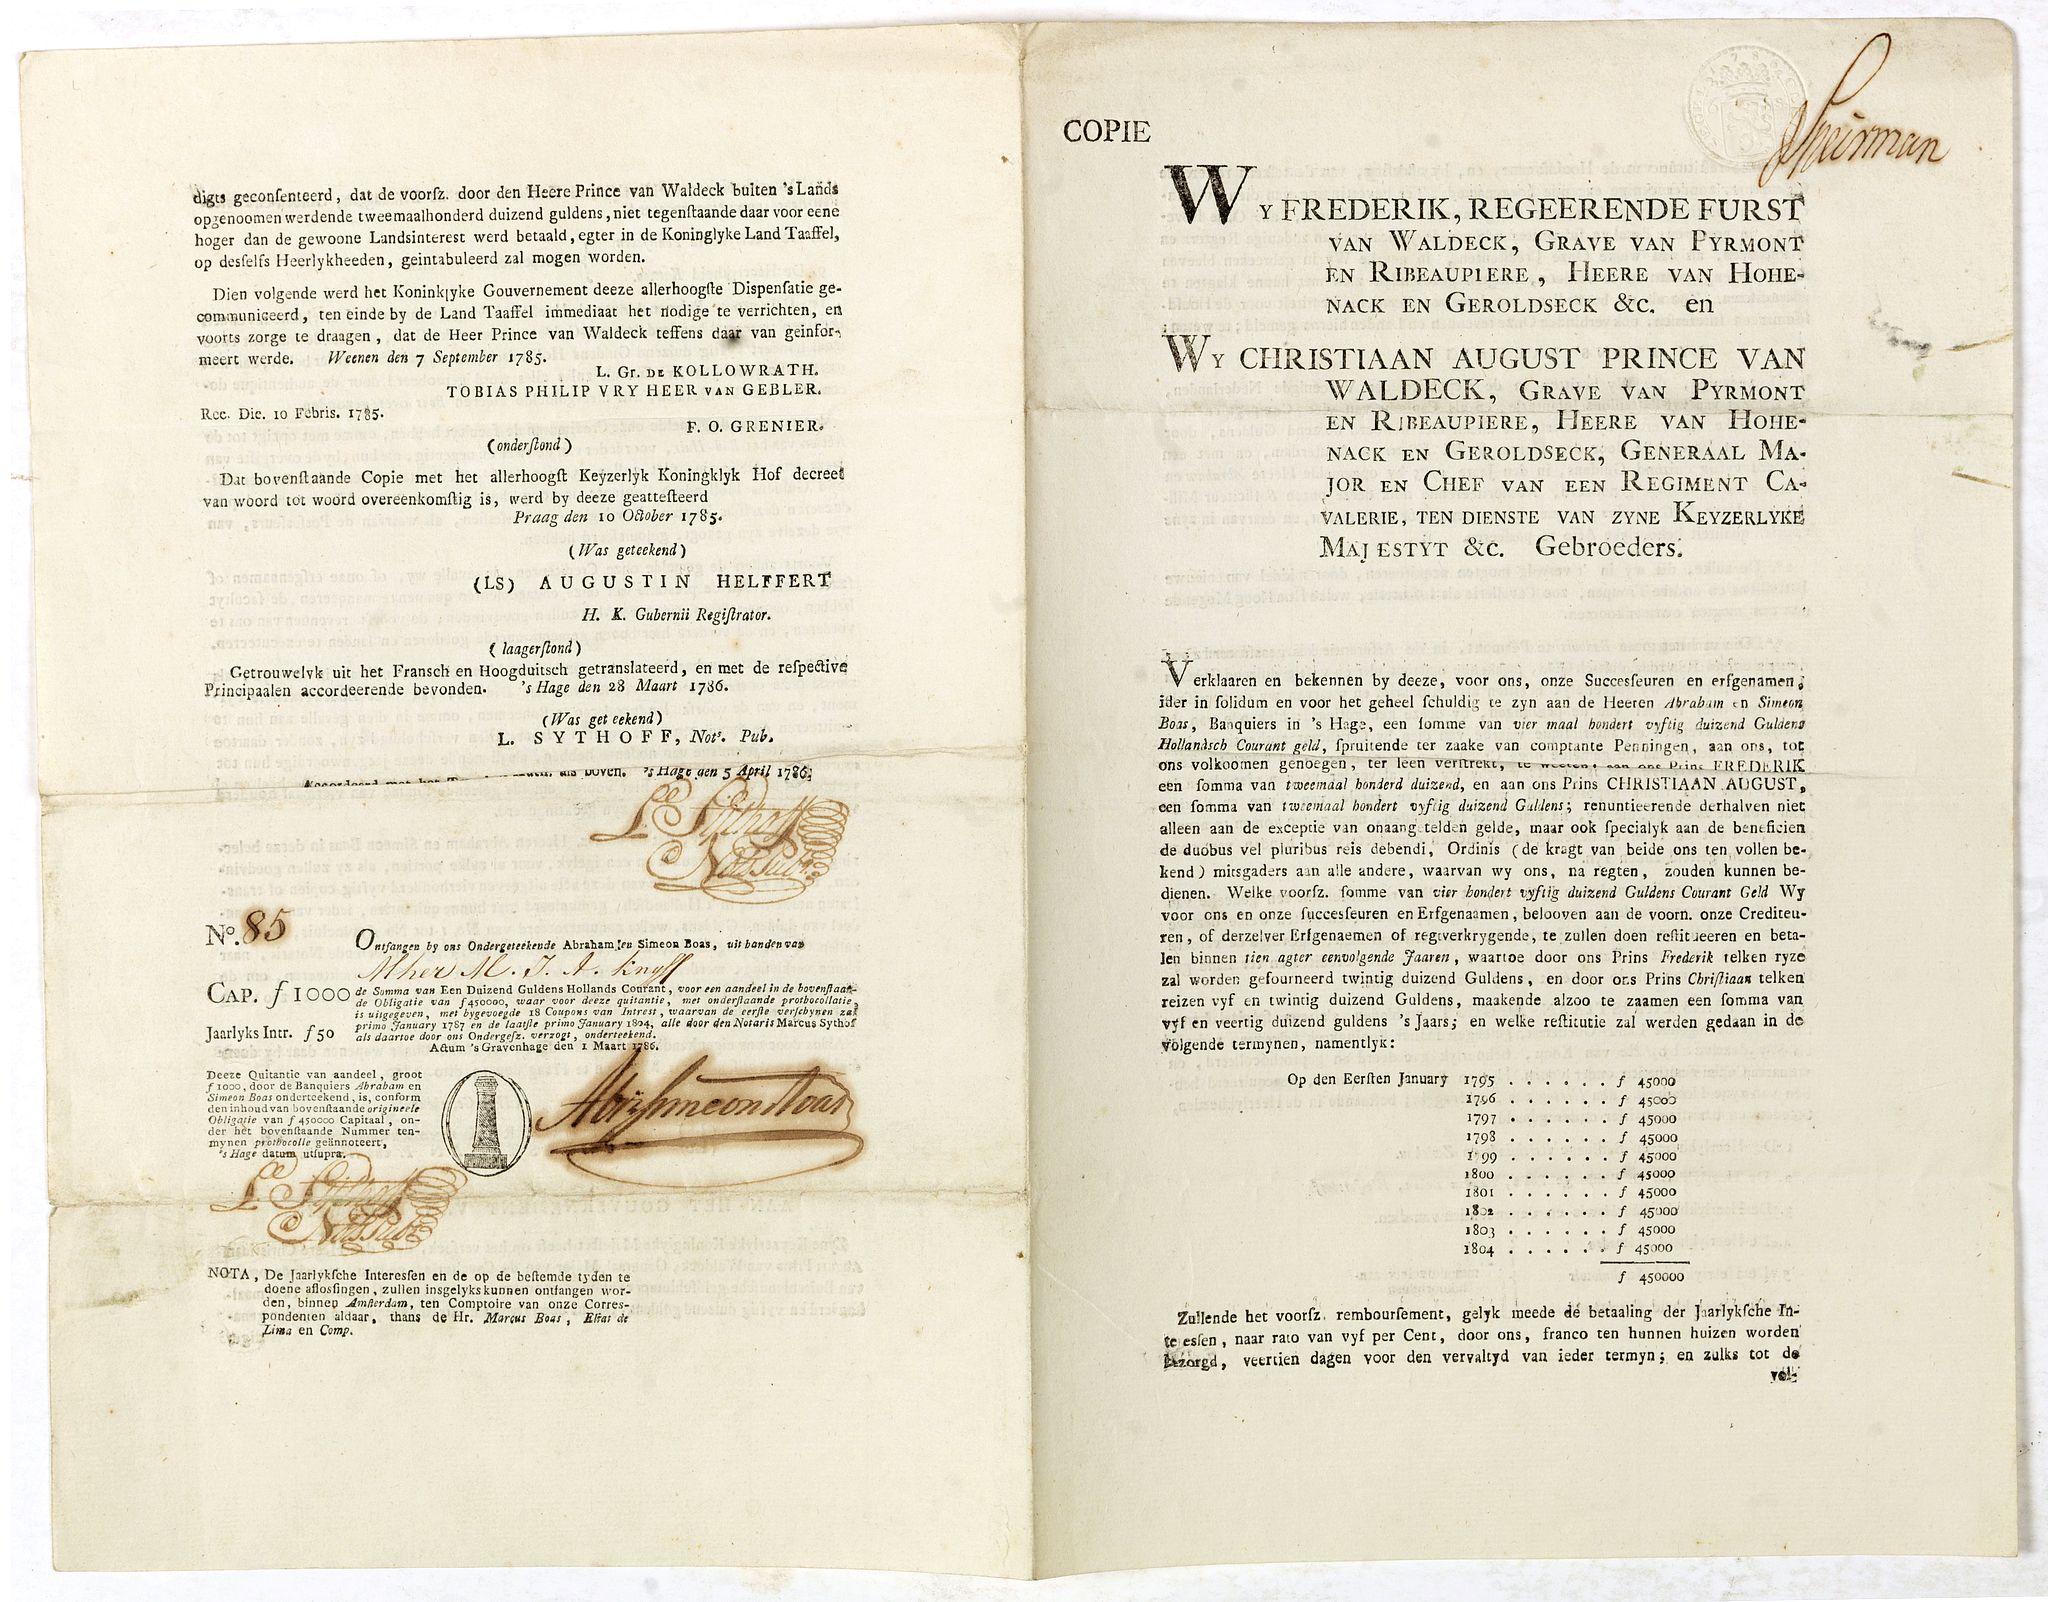 digts geconsenteerd, dat de voorsz. door den Heere Prince van Waldeck buiten 's Lands
opgenoomen werdende tweemaalhonderd duizend guldens, niet tegenstaande daar voor eene
hoger dan de gewoone Landsinterest werd betaald, egter in de Koninglyke Land Taaffel,
op desselfs Heerlykheeden, geintabuleerd zal mogen worden.
Dien volgende werd het Koninklyke Gouvernement deeze allerhoogste Dispensatie ge-
communiceerd, ten einde by de Land Taaffel immediaat het nodige te verrichten, en
voorts zorge te draagen, dat de Heer Prince van Waldeck teffens daar van geinfor-
meert werde. Weenen den 7 September 1785.
L. Gr. DE KOLLOWRATH.
TOBIAS PHILIP VRY HEER VAN GEBLER.
Rec. Die. 10 Febris. 1785.
F. O. GRENIER.
(onderstond)
Dat bovenstaande Copie met het allerhoogst Keyzerlyk Koningklyk Hof decreet
van woord tot woord overeenkomstig is, werd by deeze geattesteerd
Praag den 10 October 1785.
(Was geteekend)
(LS) AUGUSTIN HELFFERT
H. K. Gubernii Registrator.
(laagerstond)
Getrouwelyk uit het Fransch en Hoogduitsch getranslateerd, en met de respective
Principaalen accordeerende bevonden. 's Hage den 28 Maart 1786.
(Was get eekend)
L. SYTHOFF, Nots. Pub.
als boven. 's Hage den 5 April 1786.
L. Sythoff
Nots Pub.
No. 85
Ontfangen by ons Ondergeteekende Abraham en Simeon Boas, uit handen van
Mher M. J. A. Knyff
CAP. f 1000
de Somma van Een Duizend Guldens Hollands Courant, voor een aandeel in de bovenstaan-
de Obligatie van f 450000, waar voor deeze quitantie, met onderstaande prothocollatie,
is uitgegeven, met bygevoegde 18 Coupons van Intrest, waarvan de eerste verschynen zal
Jaarlyks Intr. f 50
primo January 1787 en de laatste primo January 1804, alle door den Notaris Marcus Sythof
als daartoe door ons Ondergesz. verzogt, onderteekend.
Actum 's Gravenhage den 1 Maart 1786.
Deeze Quitantie van aandeel, groot
f 1000, door de Banquiers Abraham en
Simeon Boas onderteekend, is, conform
den inhoud van bovenstaande origineele
Obligatie van f 450000 Capitaal, on-
der het bovenstaande Nummer ten-
mynen prothocolle geännoteert,
's Hage datum utsupra.
Abrm Simeon Boas
L. Sythoff
Nots Pub.
NOTA, De Jaarlyksche Interessen en de op de bestemde tyden te
doene aflossingen, zullen insgelyks kunnen ontfangen wor-
den, binnen Amsterdam, ten Comptoire van onze Corres-
pondenten aldaar, thans de Hr. Marcus Boas, Elias de
Lima en Comp.
COPIE
Speirman
WY FREDERIK, REGEERENDE FURST
VAN WALDECK, GRAVE VAN PYRMONT
EN RIBEAUPIERE, HEERE VAN HOHE-
NACK EN GEROLDSECK &c. en
WY CHRISTIAAN AUGUST PRINCE VAN
WALDECK, GRAVE VAN PYRMONT
EN RIBEAUPIERE, HEERE VAN HOHE-
NACK EN GEROLDSECK, GENERAAL MA-
JOR EN CHEF VAN EEN REGIMENT CA-
VALERIE, TEN DIENSTE VAN ZYNE KEYZERLYKE
MAJESTYT &c. Gebroeders.
Verklaaren en bekennen by deeze, voor ons, onze Successeuren en erfgenamen,
ider in solidum en voor het geheel schuldig te zyn aan de Heeren Abraham en Simeon
Boas, Banquiers in 's Hage, een somme van vier maal hondert vyftig duizend Guldens
Hollandsch Courant geld, spruitende ter zaake van comptante Penningen, aan ons, tot
ons volkoomen genoegen, ter leen verstrekt, te weeten: aan ons Prins FREDERIK
een somma van tweemaal honderd duizend, en aan ons Prins CHRISTIAAN AUGUST,
een somma van tweemaal hondert vyftig duizend Guldens; renuntieerende derhalven niet
alleen aan de exceptie van onaang telden gelde, maar ook specialyk aan de beneficien
de duobus vel pluribus reis debendi, Ordinis (de kragt van beide ons ten vollen be-
kend) mitsgaders aan alle andere, waarvan wy ons, na regten, zouden kunnen be-
dienen. Welke voorsz. somme van vier hondert vyftig duizend Guldens Courant Geld Wy
voor ons en onze successeuren en Erfgenaamen, belooven aan de voorn. onze Crediteu-
ren, of derzelver Erfgenaemen of regtverkrygende, te zullen doen restitueeren en beta-
len binnen tien agter eenvolgende Jaaren, waartoe door ons Prins Frederik telken ryze
zal worden gefourneerd twintig duizend Guldens, en door ons Prins Christiaan telken
reizen vyf en twintig duizend Guldens, maakende alzoo te zaamen een somma van
vyf en veertig duizend guldens 's Jaars; en welke restitutie zal werden gedaan in de
volgende termynen, namentlyk:
Op den Eersten January 1795 . . . . . . f 45000
1796 . . . . . . f 45000
1797 . . . . . . f 45000
1798 . . . . . . f 45000
1799 . . . . . . f 45000
1800 . . . . . . f 45000
1801 . . . . . . f 45000
1802 . . . . . . f 45000
1803 . . . . . . f 45000
1804 . . . . . . f 45000
f 450000
Zullende het voorsz. remboursement, gelyk meede de betaaling der Jaarlyksche In-
te essen, naar rato van vyf per Cent, door ons, franco ten hunnen huizen worden
bezorgd, veertien dagen voor den vervaltyd van ieder termyn; en zulks tot de
vol-